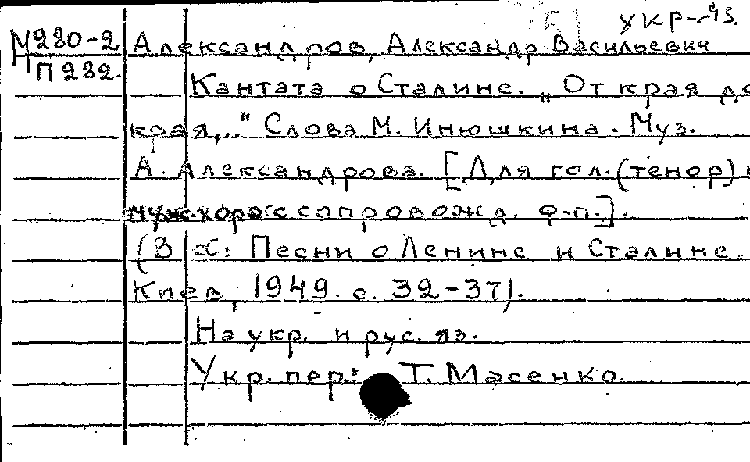 укр-
М230-2 Александров, Александр Васильевич
П232. Кантата о Сталине. „От края до
края,..." Слова М. Инюшкина. Муз.
А. Александрова. [Для гол. (тенор) и
муж. хора с сопровожд. ф-п.].
(В кн: Песни о Ленине и Сталине.
Киев, 1949. с. 32-37).
На укр. и рус. яз.
Укр. пер.: Т. Масенко.